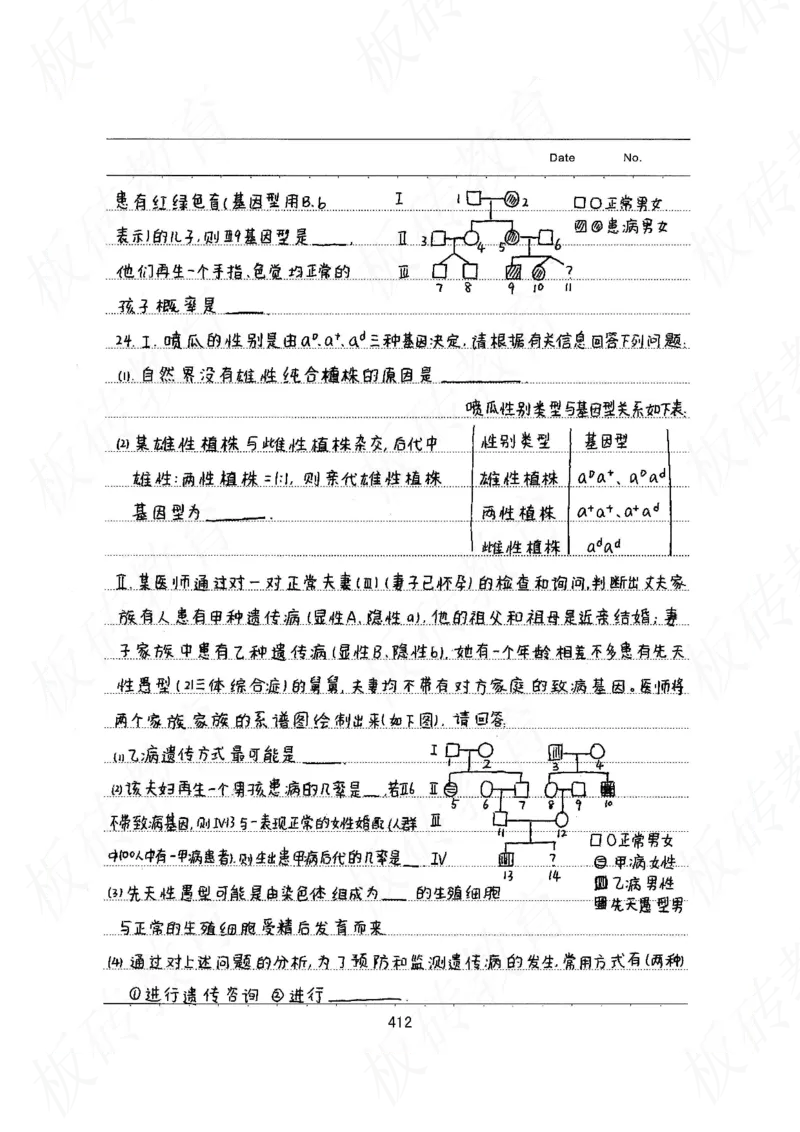 Date No.
患有红绿色盲(基因型用B.b
表示)的儿子,则Ⅲ9基因型是____,
他们再生一个手指、色觉均正常的
孩子概率是____
Ⅰ 1 2 □○正常男女
Ⅱ 3 4 5 6 患病男女
Ⅲ ?
7 8 9 10 11
24. Ⅰ. 喷瓜的性别是由aᴰ、a⁺、aᵈ三种基因决定,请根据有关信息回答下列问题:
(1). 自然界没有雄性纯合植株的原因是________.
喷瓜性别类型与基因型关系如下表.
(2) 某雄性植株与雌性植株杂交,后代中
雄性:两性植株=1:1, 则亲代雄性植株
基因型为______.
性别类型 基因型
雄性植株 aᴰa⁺、aᴰaᵈ
两性植株 a⁺a⁺、a⁺aᵈ
雌性植株 aᵈaᵈ
Ⅱ. 某医师通过对一对正常夫妻(Ⅲ)(妻子已怀孕)的检查和询问,判断出丈夫家
族有人患有甲种遗传病(显性A、隐性a), 他的祖父和祖母是近亲结婚; 妻
子家族中患有乙种遗传病(显性B、隐性b), 她有一个年龄相差不多患有先天
性愚型(21三体综合症)的舅舅, 夫妻均不带有对方家庭的致病基因。医师将
两个家族家族的系谱图绘制出来(如下图). 请回答:
(1)乙病遗传方式最可能是____.
(2)该夫妇再生一个男孩患病的几率是__.若Ⅱ6
不带致病基因,则Ⅳ13与一表现正常的女性婚配(人群
中100人中有一甲病患者),则生出患甲病后代的几率是__.
(3)先天性愚型可能是由染色体组成为__的生殖细胞
与正常的生殖细胞受精后发育而来
Ⅰ 1 2 3 4
Ⅱ 5 6 7 8 9 10
Ⅲ 11 12
Ⅳ ?
13 14
□○正常男女
甲病女性
乙病男性
先天愚型男
(4) 通过对上述问题的分析,为了预防和监测遗传病的发生,常用方式有(两种)
①进行遗传咨询 ②进行______.
412
板砖教育